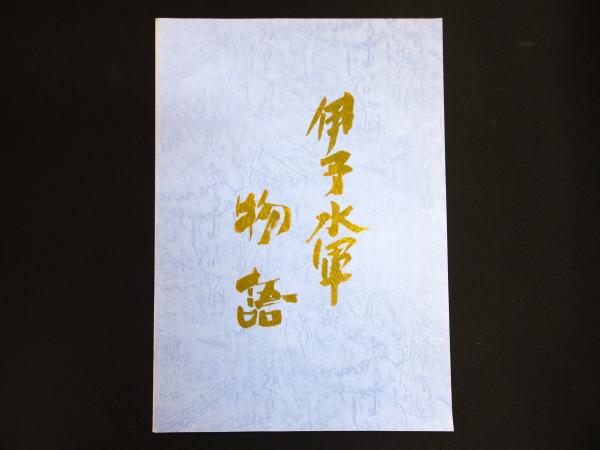 伊予水軍
物語